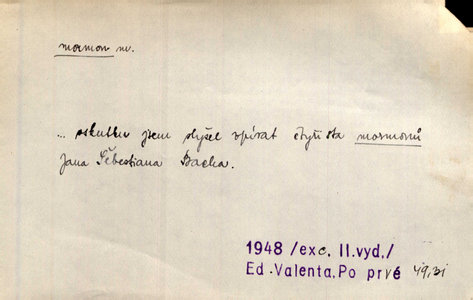 mormon m.
... skutku jsem slyšel zpívat čtyři sta mormonů
Jana Šebestiana Bacha.
1948 /exc. II.vyd./
Ed.Valenta,Po prvé 49,21